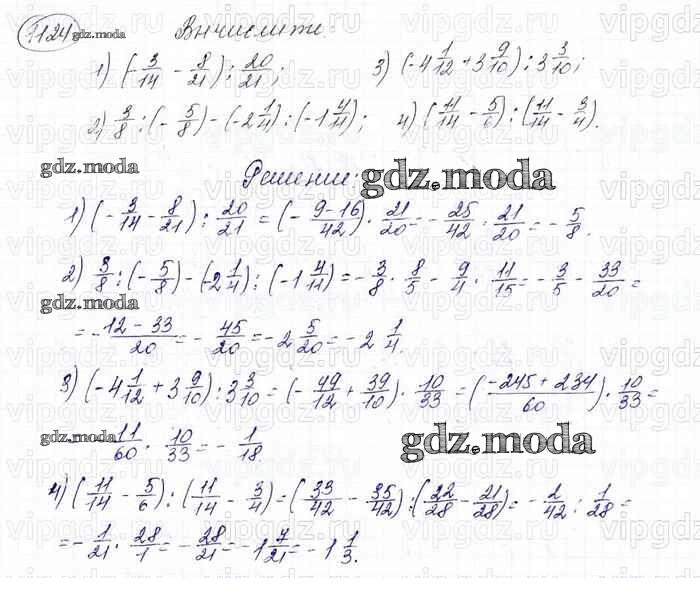 1124 gdz.moda Вычислите:
1) (-3/14 - 8/21) : 20/21; 3) (-4 1/12 + 3 9/10) : 3 3/10;
2) 3/8 : (-5/8) - (-2 1/4) : (-1 4/11); 4) (11/14 - 5/6) : (11/14 - 3/4).
gdz.moda
Решение: gdz.moda
1) (-3/14 - 8/21) : 20/21 = (-9-16/42) · 21/20 = -25/42 · 21/20 = -5/8.
2) 3/8 : (-5/8) - (-2 1/4) : (-1 4/11) = -3/8 · 8/5 - 9/4 · 11/15 = -3/5 - 33/20 =
gdz.moda
= -12-33/20 = -45/20 = -2 5/20 = -2 1/4.
3) (-4 1/12 + 3 9/10) : 3 3/10 = (-49/12 + 39/10) · 10/33 = (-245+234/60) · 10/33 =
gdz.moda 11/60 · 10/33 = -1/18 gdz.moda
4) (11/14 - 5/6) : (11/14 - 3/4) = (33/42 - 35/42) : (22/28 - 21/28) = -2/42 : 1/28 =
= -1/21 · 28/1 = -28/21 = -1 7/21 = -1 1/3.
vipgdz.ru